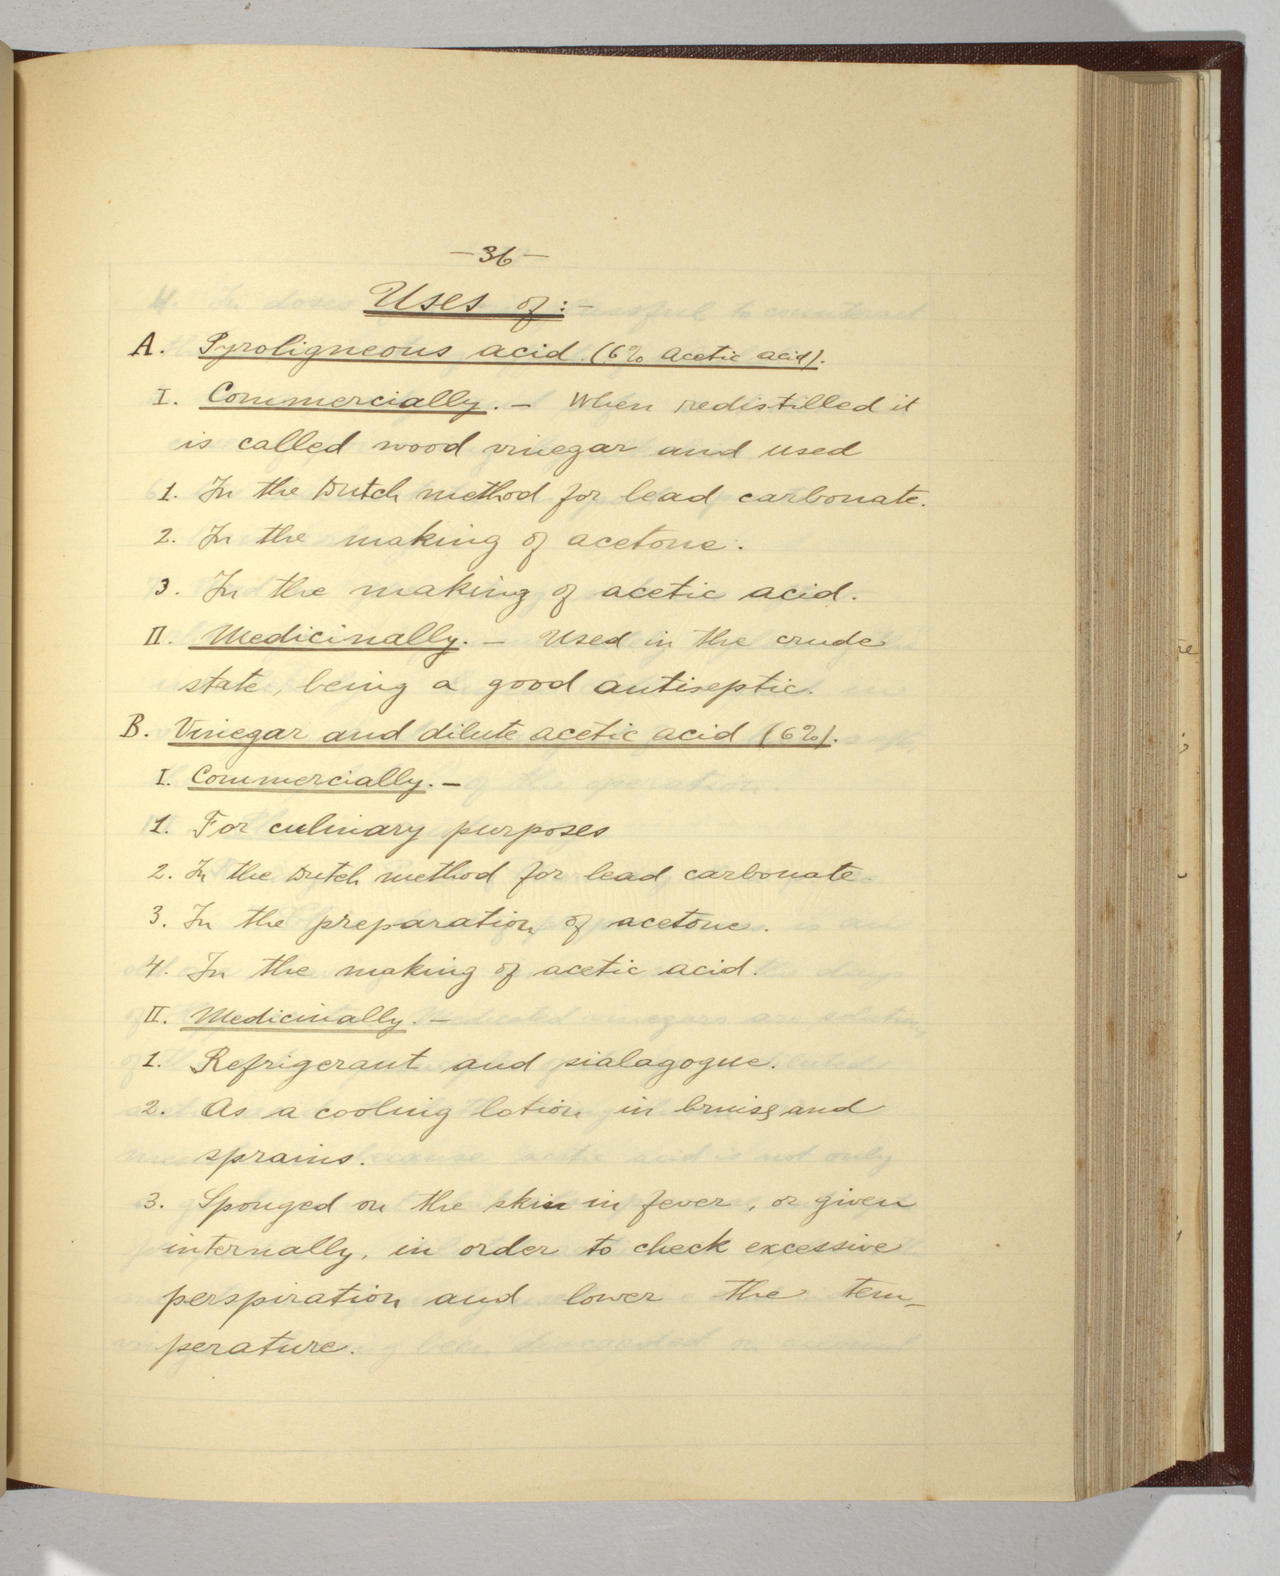 -36-
Uses of:-
A. Pyroligneous acid (6% acetic acid).
I. Commercially. - When redistilled it
is called wood vinegar and used
1. In the Dutch method for lead carbonate.
2. In the making of acetone.
3. In the making of acetic acid.
II. Medicinally. - Used in the crude
state, being a good antiseptic.
B. Vinegar and dilute acetic acid (6%).
I. Commercially. -
1. For culinary purposes
2. In the Dutch method for lead carbonate.
3. In the preparation of acetone.
4. In the making of acetic acid.
II. Medicinally. -
1. Refrigerant and sialagogue.
2. As a cooling lotion in bruises and
sprains.
3. Sponged on the skin in fever, or given
internally, in order to check excessive
perspiration and lower the tem-
perature.